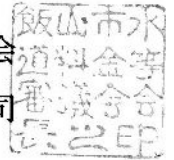 飯山市水
道料金等
審議会会
長之印